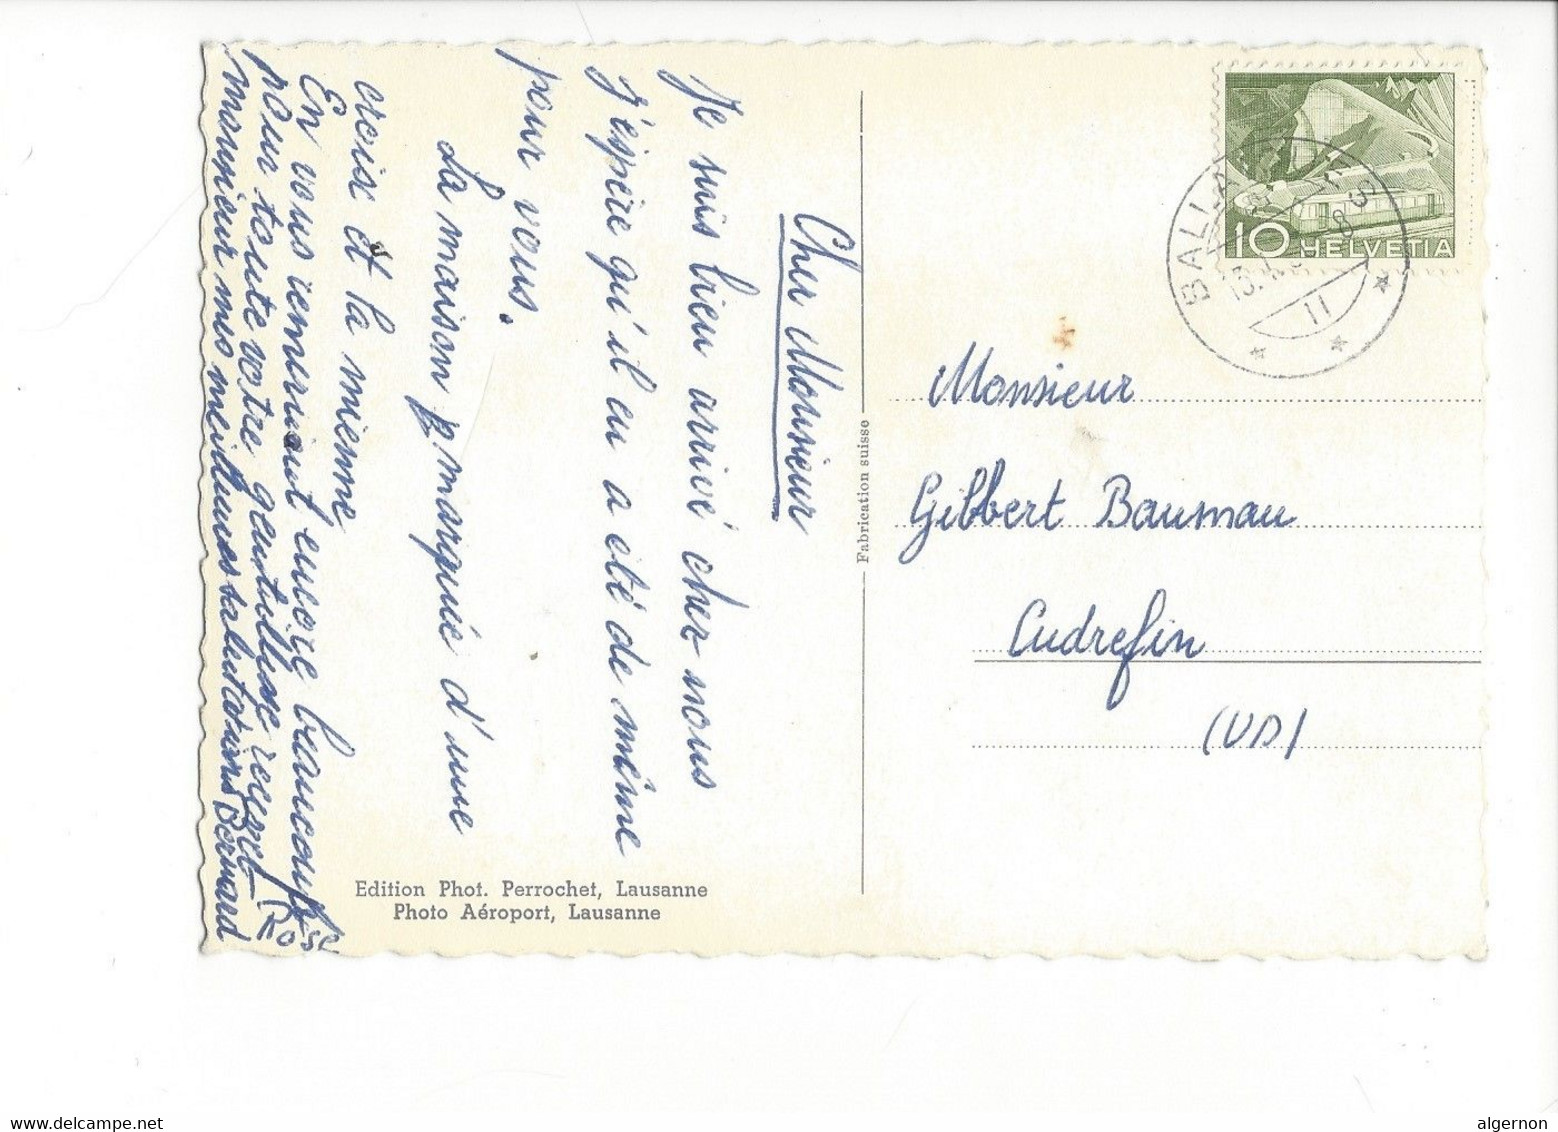 Cher Monsieur
Je suis bien arrivé chez nous
j'espère qu'il en a été de même
pour vous.
La maison marquée d'une
croix et la mienne
En vous remerciant encore beaucoup
pour toute votre gentillesse recevez
monsieur mes meilleures salutations Bernard
Rose
Edition Phot. Perrochet, Lausanne
Photo Aéroport, Lausanne
Fabrication suisse
10 HELVETIA
BALLAIGUES
II
Monsieur
Gilbert Bauman
Cudrefin
(VD)
algernon